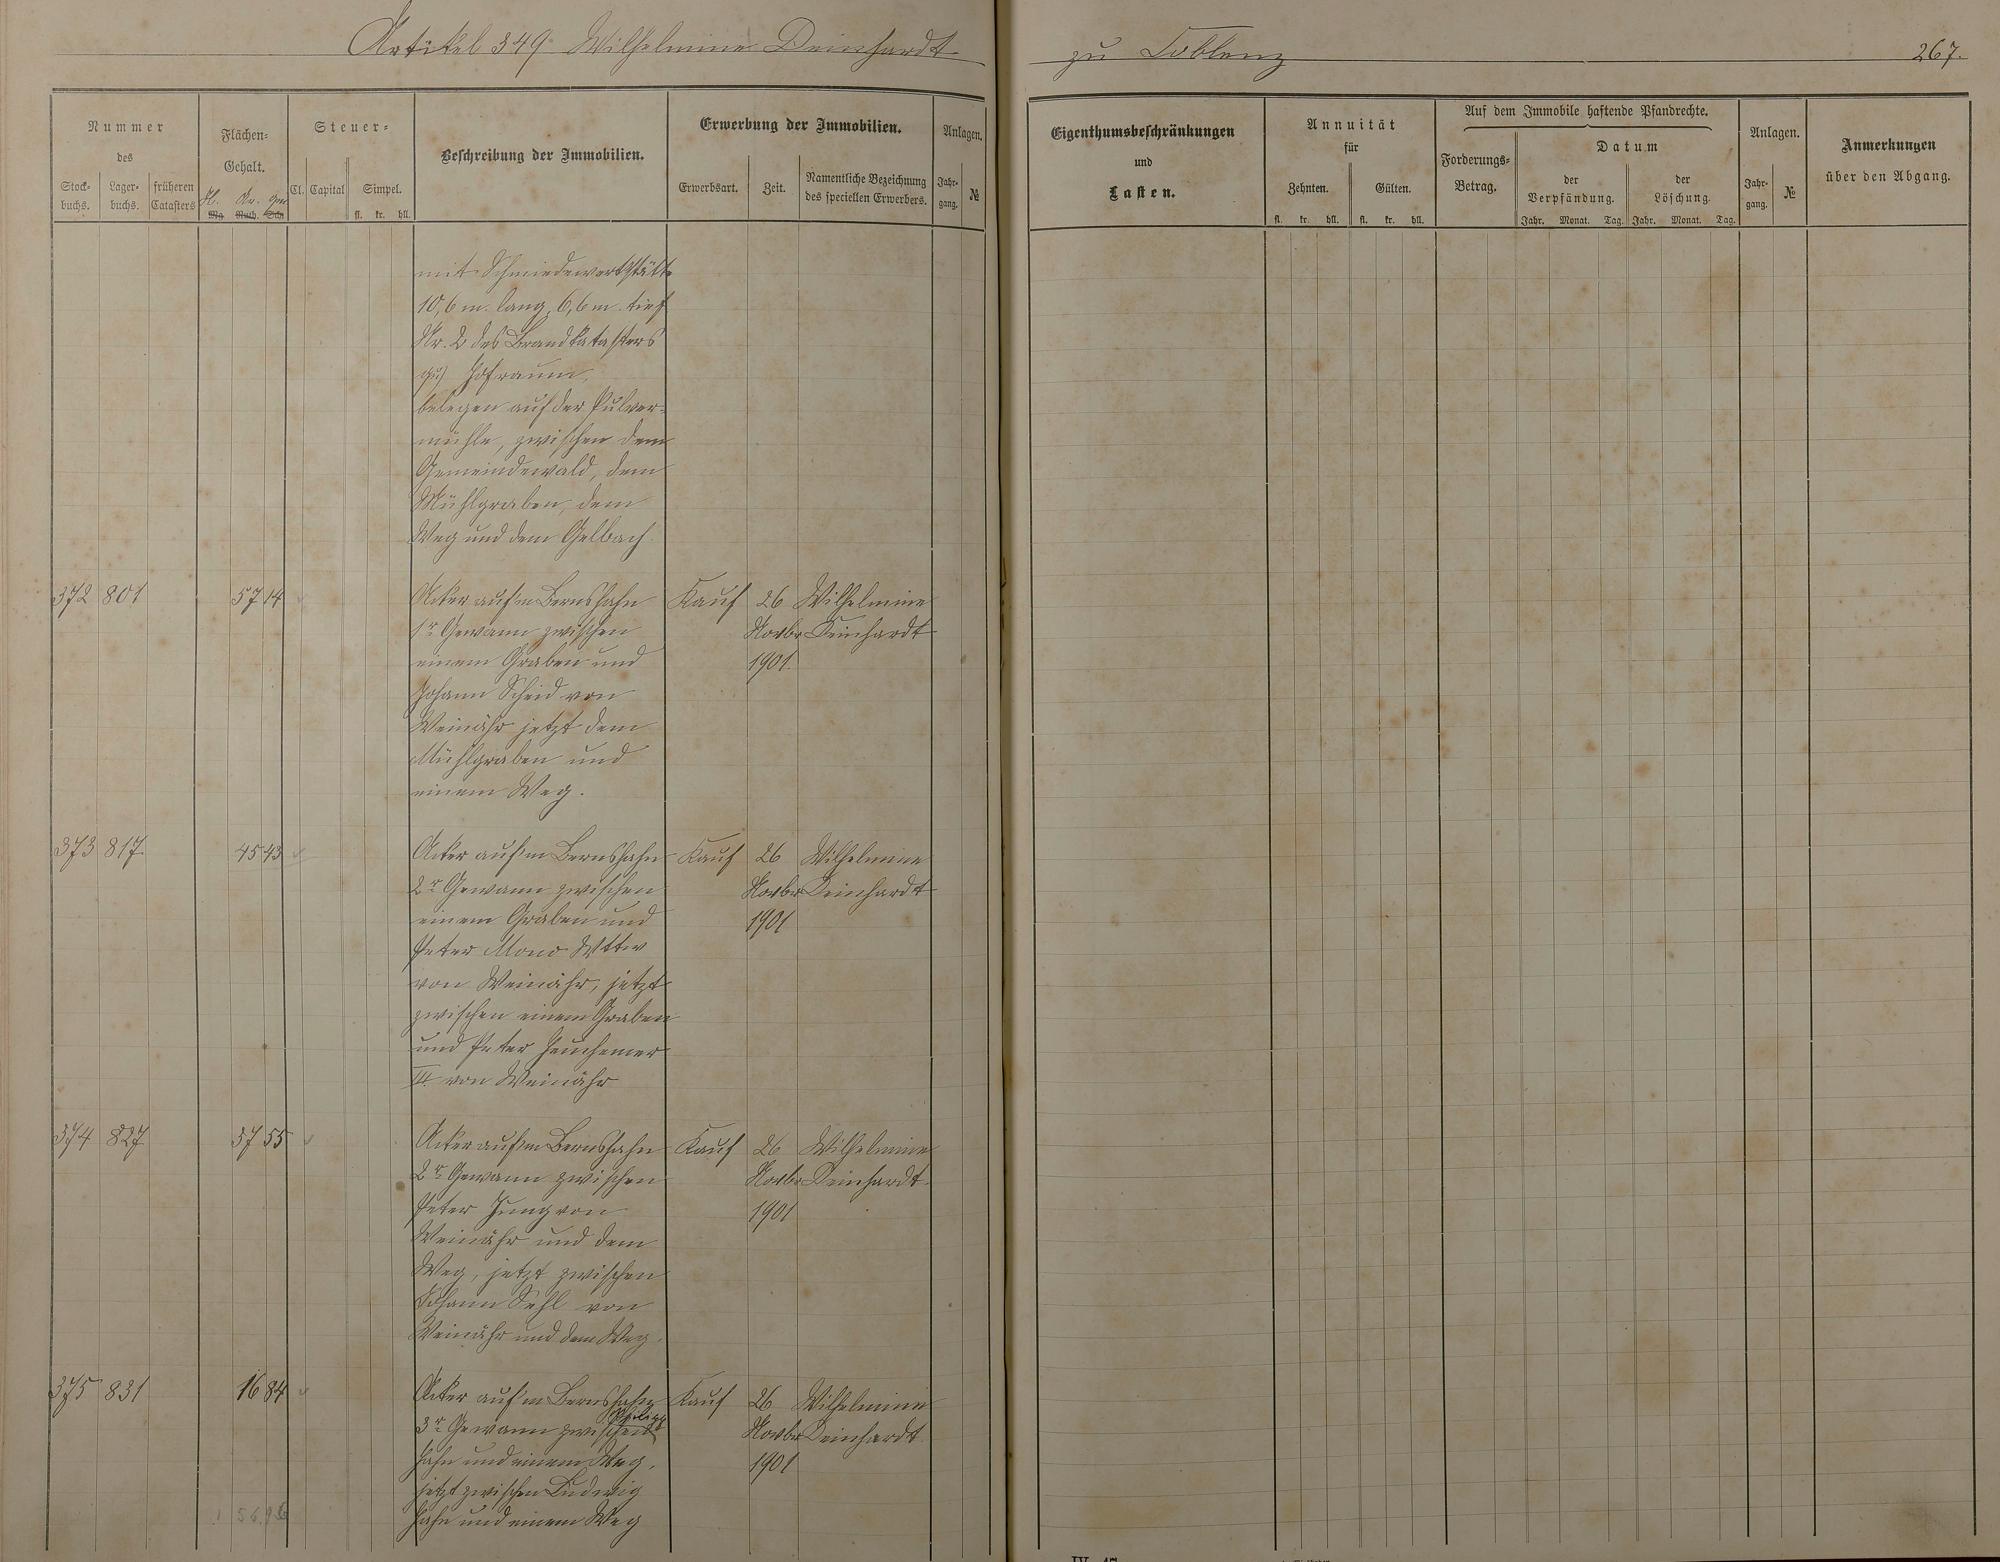 Artikel 349 Wilhelmine Deinhardt zu Coblenz 267.
Nummer
des
Stock-
buchs.
Lager-
buchs.
früheren
Catasters
Flächen-
Gehalt.
H. Ar. qm
Mg. Ruth. Sch.
Steuer-
Cl. Capital Simpel.
fl. kr. hll.
Beschreibung der Immobilien.
Erwerbung der Immobilien.
Erwerbsart. Zeit.
Namentliche Bezeichnung
des speciellen Erwerbers.
Anlagen.
Jahr-
gang.
№
Eigenthumsbeschränkungen
und
Lasten.
Annuität
für
Zehnten. Gülten.
fl. kr. hll. fl. kr. hll.
Auf dem Immobile haftende Pfandrechte.
Forderungs-
Betrag.
Datum
der
Verpfändung.
Jahr. Monat. Tag.
der
Löschung.
Jahr. Monat. Tag.
Anlagen.
Jahr-
gang.
№
Anmerkungen
über den Abgang.
mit Schmiedewerkstätte
10,6 m. lang, 6,6 m. tief
Nr. 2 des Brandkatasters
Hofraum,
belegen auf der Pulver-
mühle, zwischen dem
Gemeindewald, dem
Mühlgraben, dem
Weg und dem Gelbach
372 801 57 14 Acker auf'm Bernshahn Kauf 26 Wilhelmine
1r Gewann zwischen Novbr Deinhardt
einem Graben und 1901.
Johann Scheid von
Weinähr jetzt dem
Mühlgraben und
einem Weg.
373 817 45 43 Acker auf'm Bernshahn Kauf 26 Wilhelmine
2r Gewann zwischen Novbr Deinhardt
einem Graben und 1901
Peter Mono Wttw
von Weinähr, jetzt
zwischen einem Graben
und Peter Heuchemer
III. von Weinähr
374 827 37 55 Acker auf'm Bernshahn Kauf 26 Wilhelmine
2r Gewann zwischen Novbr Deinhardt
Peter Jung von 1901
Weinähr und dem
Weg, jetzt zwischen
Johann Sehl von
Weinähr und dem Weg.
375 831 16 84 Acker auf'm Bernshahn Kauf 26 Wilhelmine
Philipp
3r Gewann zwischen Novbr Deinhardt
Hahn und einem Weg, 1901
jetzt zwischen Ludwig
Hahn und einem Weg
1 56.96